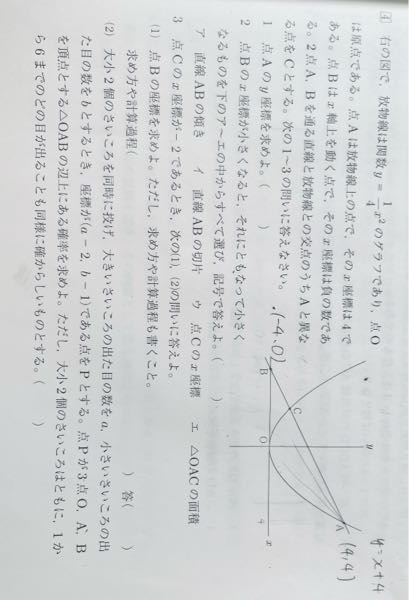 4 右の図で，放物線は関数 y = 1/4 x² のグラフであり，点O
は原点である。点Aは放物線上の点で，そのx座標は4で
ある。点Bはx軸上を動く点で，そのx座標は負の数であ
る。2点A，Bを通る直線と放物線との交点のうちAと異な
る点をCとする。次の1～3の問いに答えなさい。
1 点Aのy座標を求めよ。( )
2 点Bのx座標が小さくなると，それにともなって小さく
なるものを下のア～エの中からすべて選び，記号で答えよ。( )
ア 直線ABの傾き イ 直線ABの切片 ウ 点Cのx座標 エ △OACの面積
3 点Cのx座標が－2であるとき，次の(1)，(2)の問いに答えよ。
(1) 点Bの座標を求めよ。ただし，求め方や計算過程も書くこと。
求め方や計算過程( ) 答( )
(2) 大小2個のさいころを同時に投げ，大きいさいころの出た目の数をa，小さいさいころの出
た目の数をbとするとき，座標が(a－2，b－1)である点をPとする。点Pが3点O，A，B
を頂点とする△OABの辺上にある確率を求めよ。ただし，大小2個のさいころはともに，1か
ら6までのどの目が出ることも同様に確からしいものとする。( )
y = x + 4
(4,4)
(-4,0)
y
A
C
B
O
4
x